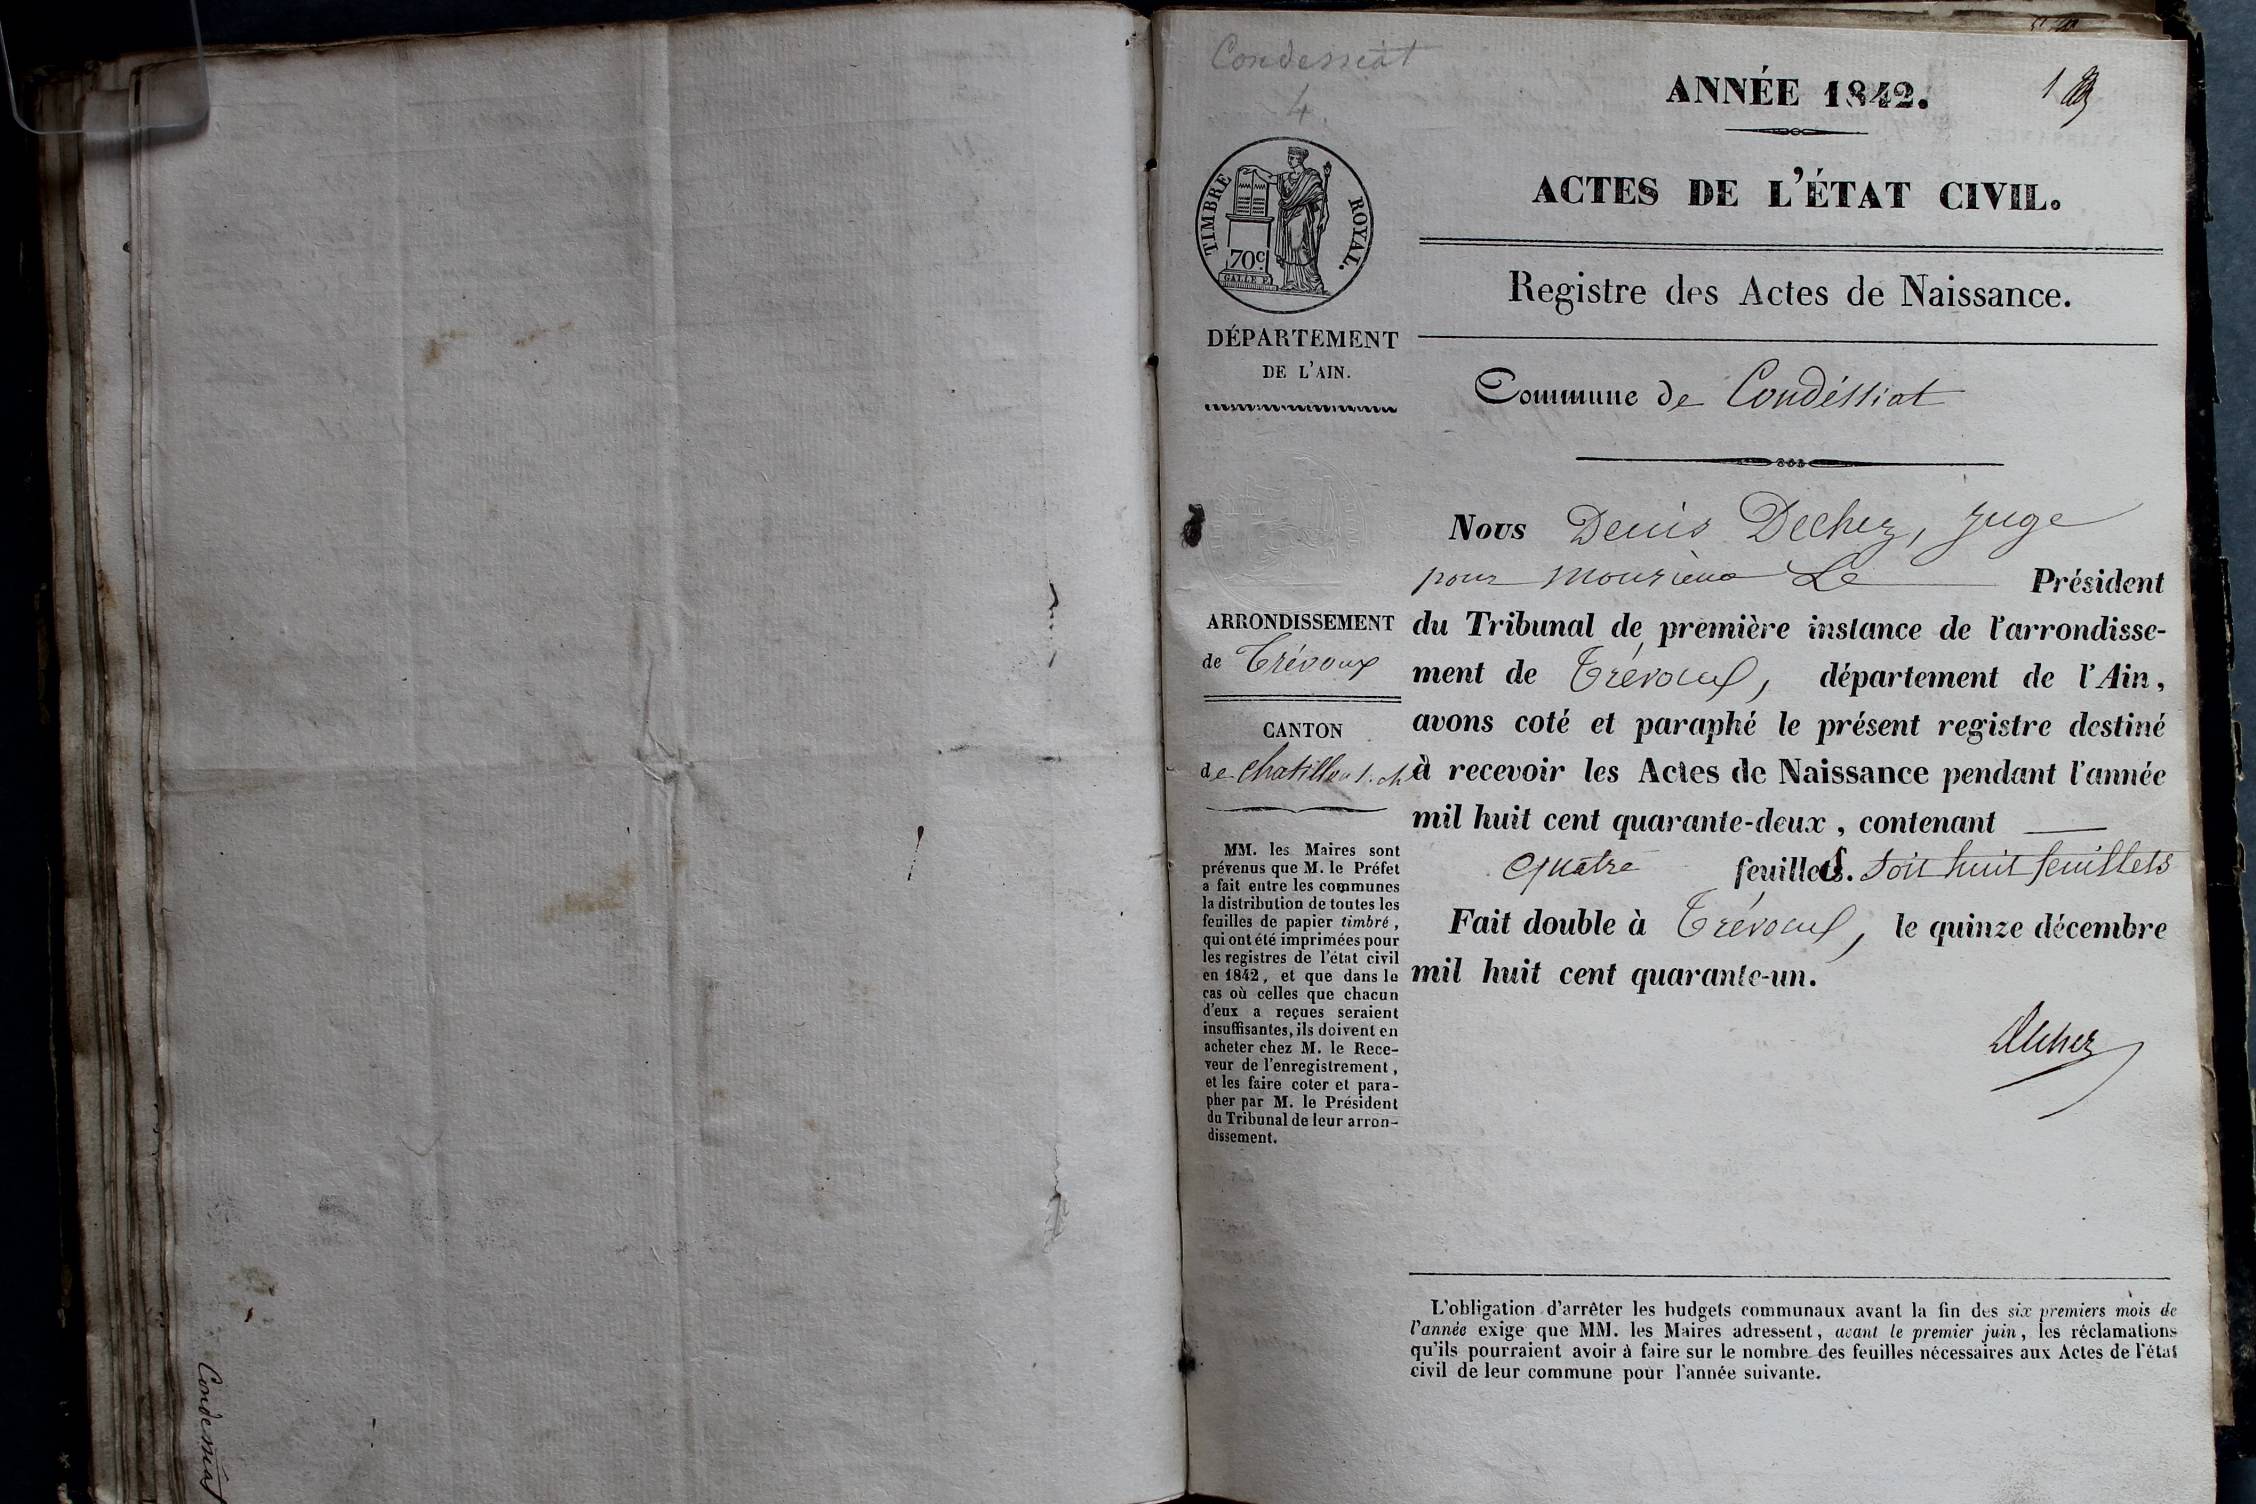 Condessiat
Condessiat
4
ANNÉE 1842.
1
TIMBRE ROYAL.
70c
GALLE F.
ACTES DE L'ÉTAT CIVIL.
Registre des Actes de Naissance.
DÉPARTEMENT
DE L'AIN.
Commune de Condéssiat
Nous Denis Dechez, Juge
pour monsieur Le Président
du Tribunal de première instance de l'arrondisse-
ment de Trévoux, département de l'Ain,
avons coté et paraphé le présent registre destiné
à recevoir les Actes de Naissance pendant l'année
mil huit cent quarante-deux, contenant
quatre feuillets. soit huit feuillets
Fait double à Trévoux, le quinze décembre
mil huit cent quarante-un.
Dechez
ARRONDISSEMENT
de Trévoux
CANTON
de chatillon s. ch
MM. les Maires sont
prévenus que M. le Préfet
a fait entre les communes
la distribution de toutes les
feuilles de papier timbré,
qui ont été imprimées pour
les registres de l'état civil
en 1842, et que dans le
cas où celles que chacun
d'eux a reçues seraient
insuffisantes, ils doivent en
acheter chez M. le Rece-
veur de l'enregistrement,
et les faire coter et para-
pher par M. le Président
du Tribunal de leur arron-
dissement.
L'obligation d'arrêter les budgets communaux avant la fin des six premiers mois de
l'année exige que MM. les Maires adressent, avant le premier juin, les réclamations
qu'ils pourraient avoir à faire sur le nombre des feuilles nécessaires aux Actes de l'état
civil de leur commune pour l'année suivante.